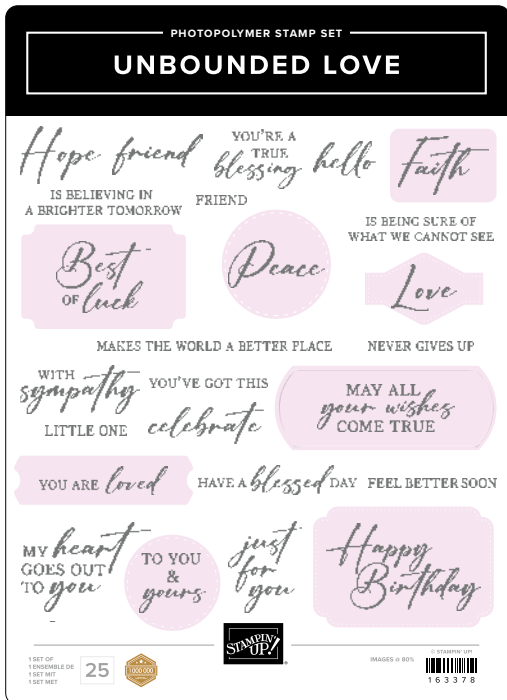 PHOTOPOLYMER STAMP SET
UNBOUNDED LOVE
Hope
friend
YOU'RE A
TRUE
blessing
hello
Faith
IS BELIEVING IN
A BRIGHTER TOMORROW
FRIEND
IS BEING SURE OF
WHAT WE CANNOT SEE
Best
OF luck
Peace
Love
MAKES THE WORLD A BETTER PLACE
NEVER GIVES UP
WITH
sympathy
YOU'VE GOT THIS
LITTLE ONE
celebrate
MAY ALL
your wishes
COME TRUE
YOU ARE loved
HAVE A blessed DAY
FEEL BETTER SOON
MY heart
GOES OUT
TO you
TO YOU
&
yours
just
for
you
Happy
Birthday
1 SET OF
1 ENSEMBLE DE
1 SET MIT
1 SET MET
25
1 000 000
STAMPIN'
UP!®
IMAGES @ 80%
© STAMPIN' UP!
163378